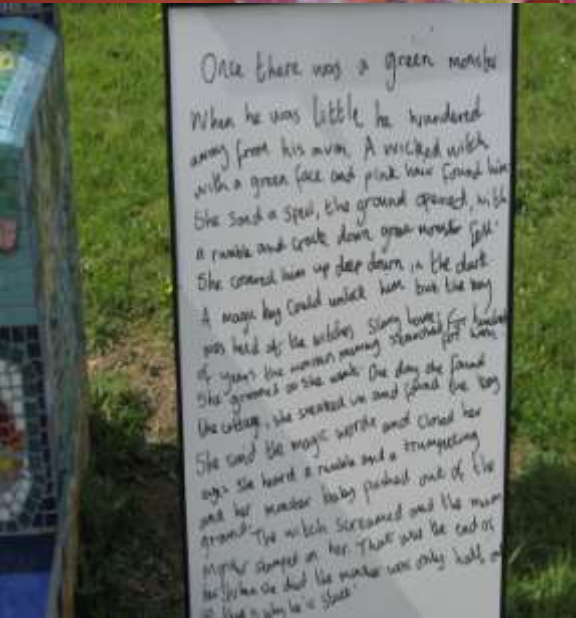 Once there was a green monster
When he was little he wandered
away from his mum. A wicked witch
with a green face and pink hair found him
She said a spell, the ground opened, with
a rumble and crack down green monster fell.
She covered him up deep down in the dark.
A magic key could unlock him but the key
was held at the witches slimy house for hundreds
of years the monsters mummy searched for him,
She groaned as she went. One day she found
the cottage, she sneaked in and found the key
She said the magic words and closed her
eyes she heard a rumble and a trumpeting
and her monster baby pushed out of the
ground. The witch screamed and the mum
monster stamped on her. That was the end of
her. When she died the monster was only half
that is why he is